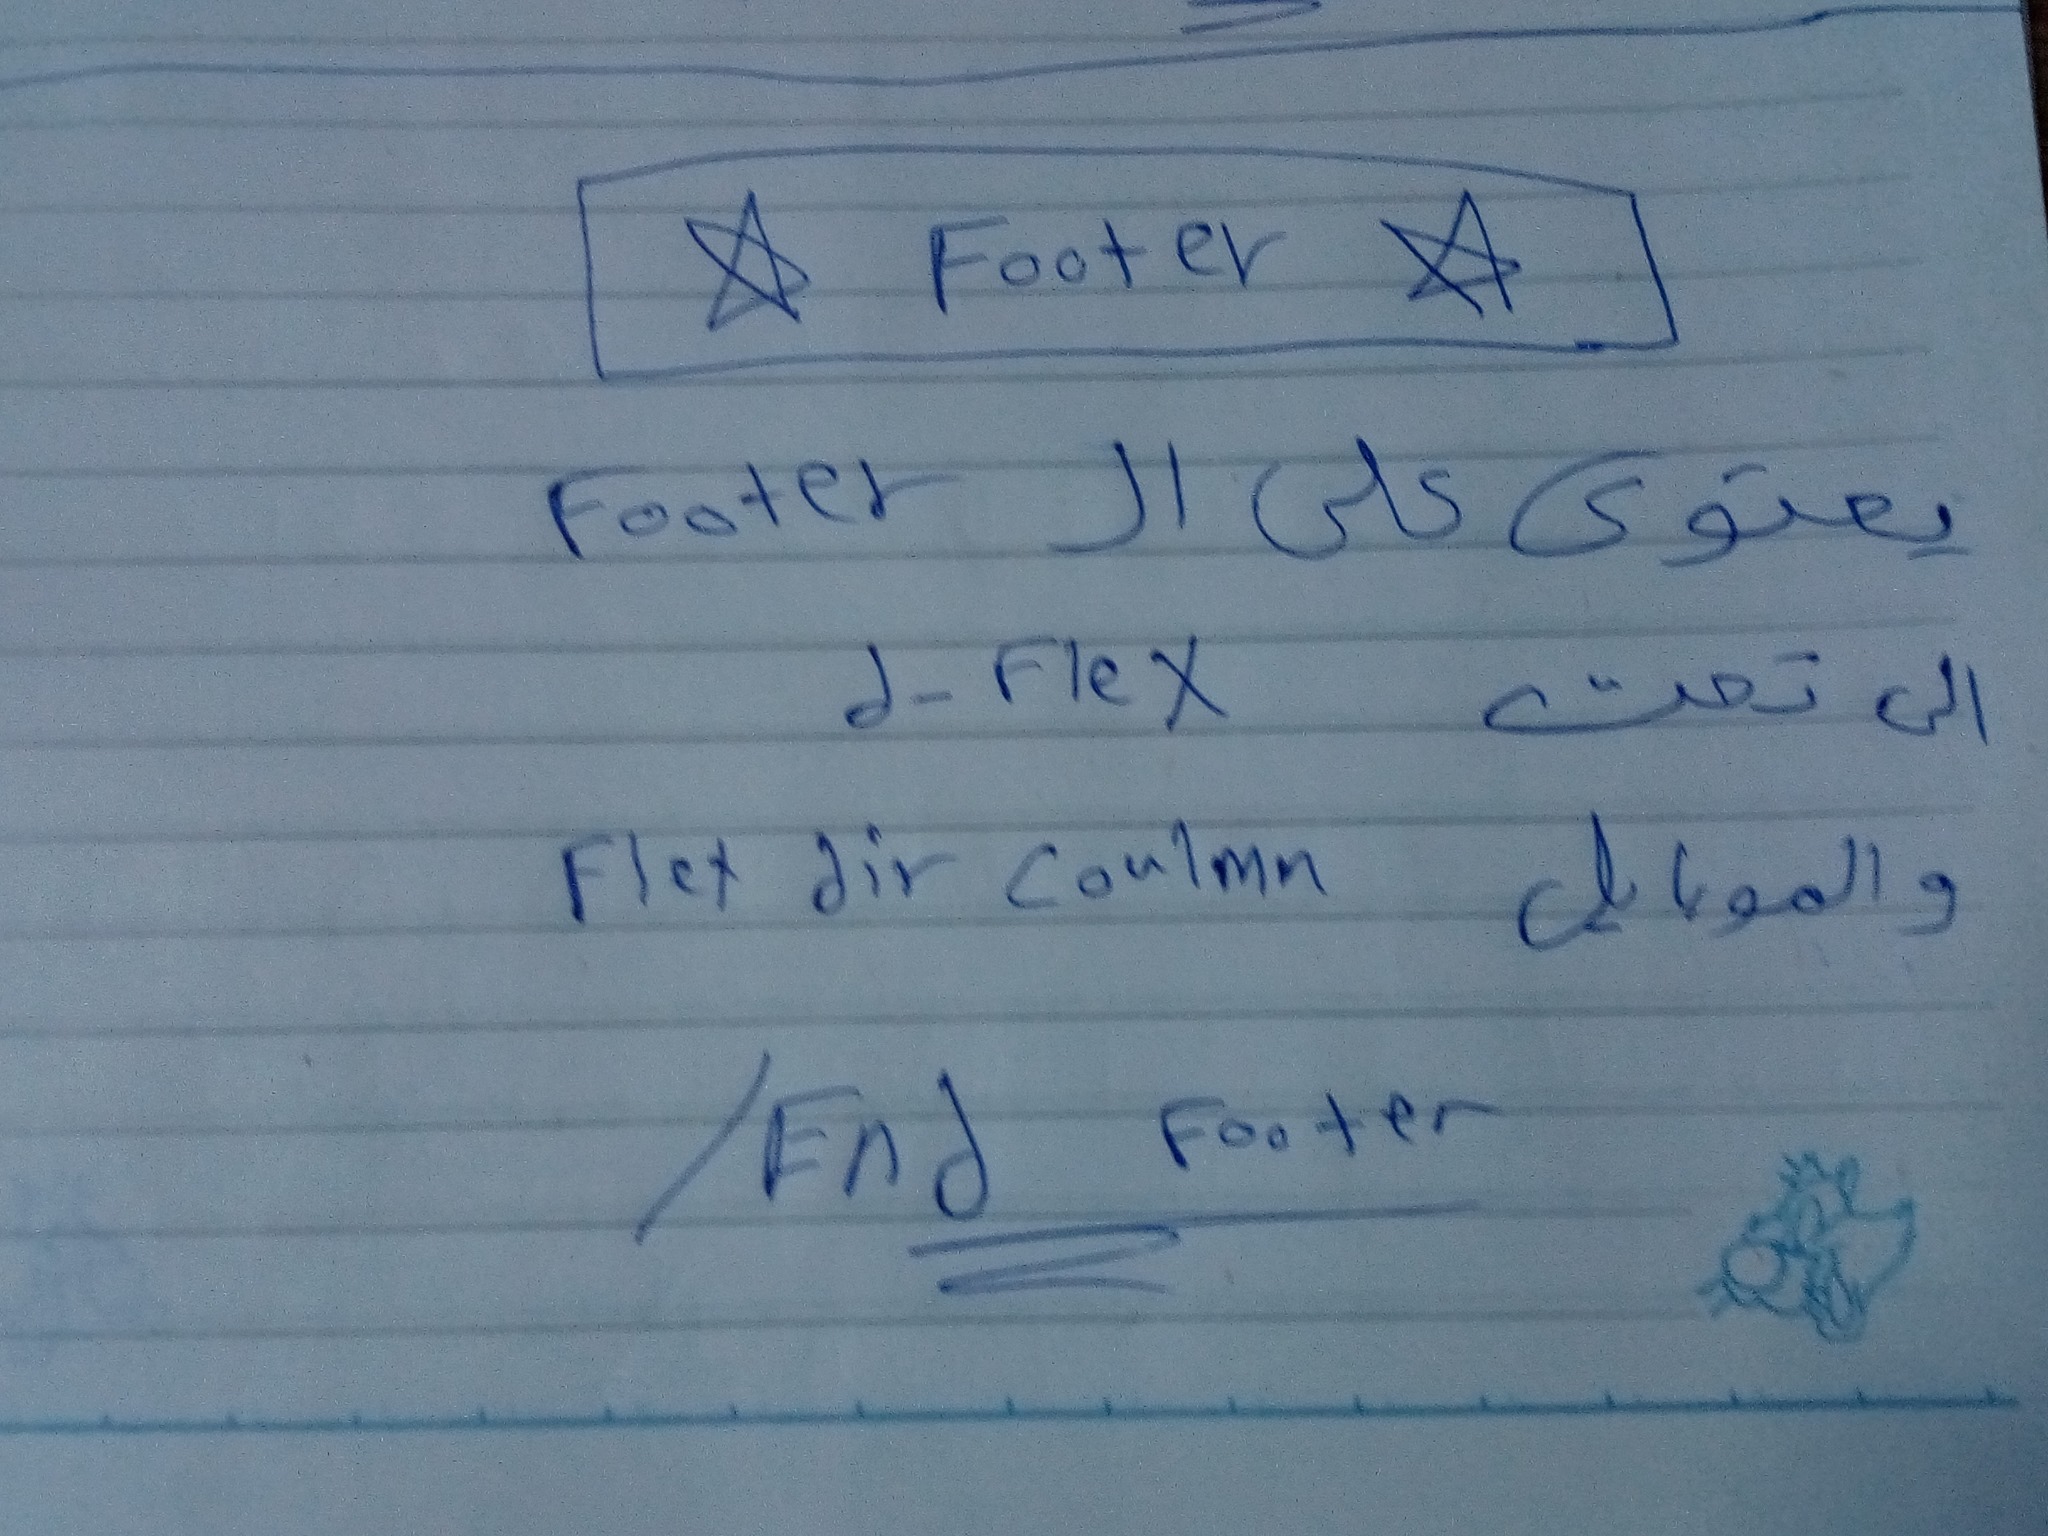 Footer
يحتوى على ال Footer
الى تحت d-Flex
والموبايل Flex dir Coulmn
/End Footer